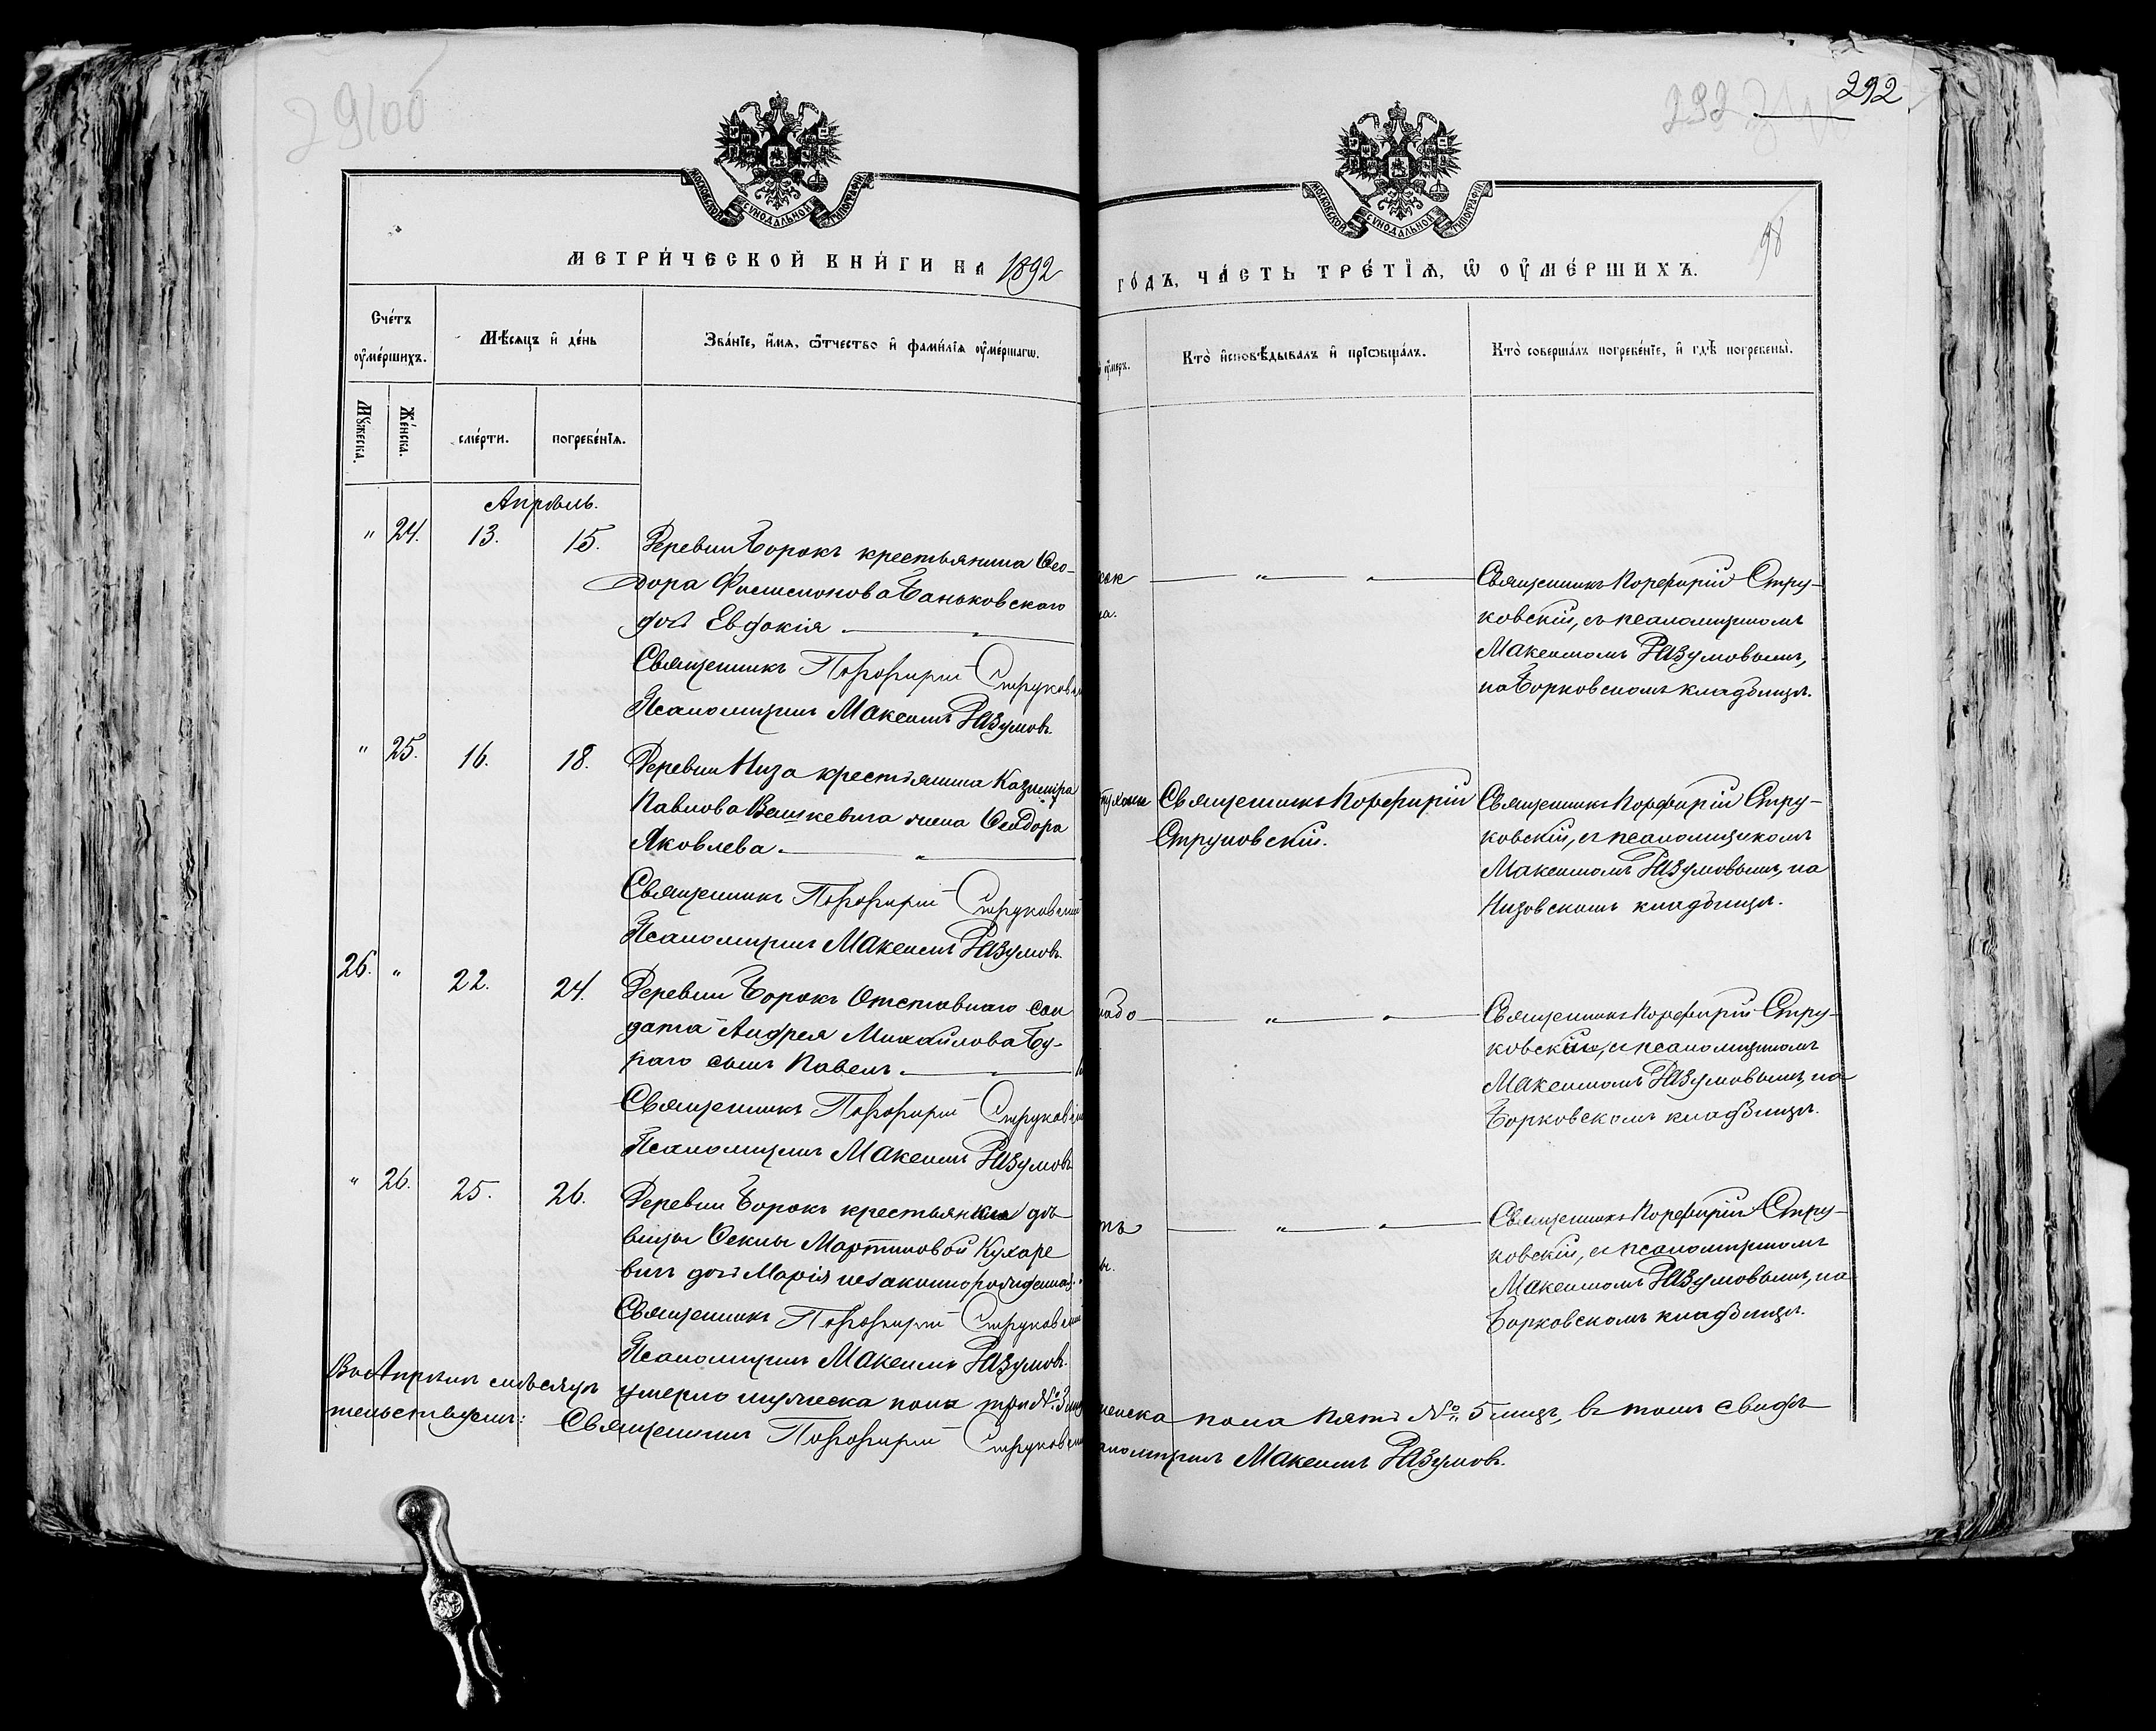 292
МОСКОВСКОЙ СУНОДАЛЬНОЙ ТИПОГРАФІИ
МОСКОВСКОЙ СУНОДАЛЬНОЙ ТИПОГРАФІИ
МЕТРИ́ЧЕСКОЙ КНИ́ГИ НА 1892
ГО́ДЪ, ЧА́СТЬ ТРЕ́ТІѦ, Ѡ ОУ҆МЕ́РШИХЪ.
98
Сче́тъ
оу҆ме́ршихъ.
Мѣ́сяцъ и҆ де́нь
Зва́нїе, и҆́мѧ, ѻ҆́тчество и҆ фами́лїѧ оу҆ме́ршагѡ.
оу҆́меръ.
Кто̀ и҆сповѣ́дывалъ и҆ прїѡбща́лъ.
Кто̀ соверша́лъ погребе́нїе, и҆ гдѣ̀ погребены̀.
Мꙋ́жеска.
Же́нска.
сме́рти.
погребе́нїѧ.
Апрѣль.
" 24. 13. 15. Деревни Борокъ крестьянина Ѳео-
дора Филимонова Баньковскаго
дочь Евдокія
Священникъ Порфирій Струков
Псаломщикъ Максимъ Разумовъ.
Священникъ Порфирій Стру-
ковскій, съ псаломщикомъ
Максимомъ Разумовымъ,
на Борковскомъ кладбищѣ.
" 25. 16. 18. Деревни Низа крестьянина Казимира
Павлова жена Ѳеодора
Яковлева
Священникъ Порфирій Струковскій
Псаломщикъ Максимъ Разумовъ.
Священникъ Порфирій
Струковскій.
Священникъ Порфирій Стру-
ковскій, съ псаломщикомъ
Максимомъ Разумовымъ, на
Низовскомъ кладбищѣ.
26. " 22. 24. Деревни Борокъ Отставнаго сол
дата Андрея Михайлова Бу-
раго сынъ Павелъ.
Священникъ Порфирій Струковскій
Псаломщикъ Максимъ Разумовъ
Священникъ Порфирій Стру-
ковскій, съ псаломщикомъ
Максимомъ Разумовымъ, на
Борковскомъ кладбищѣ.
" 26. 25. 26. Деревни Борокъ крестьянки дѣ
вицы Ѳеклы Мартиновой Кухаре
вичъ дочь Марія незаконнорожденная
Священникъ Порфирій Струковскій
Псаломщикъ Максимъ Разумовъ.
Священникъ Порфирій Стру-
ковскій, съ псаломщикомъ
Максимомъ Разумовымъ, на
Борковскомъ кладбищѣ.
Въ Апрѣлѣ мѣсяцѣ умерло мужеска пола три № 3 женска пола пять № 5 лицъ, въ томъ свидѣ
тельствуемъ: Священникъ Порфирій Струковскій псаломщикъ Максимъ Разумовъ.